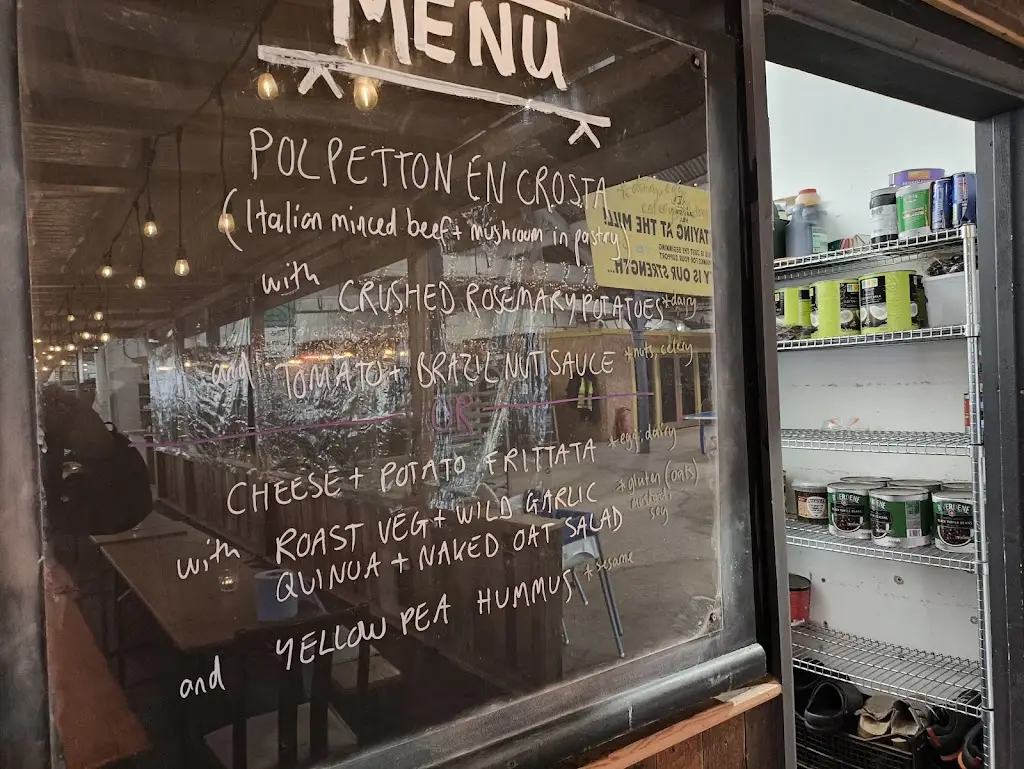 MENU
POLPETTON EN CROSTA
(Italian minced beef + mushroom in pastry)
with CRUSHED ROSEMARY POTATOES *dairy
and TOMATO + BRAZIL NUT SAUCE *nuts, celery
OR
CHEESE + POTATO FRITTATA *egg, dairy
with ROAST VEG + WILD GARLIC *gluten (oats)
QUINUA + NAKED OAT SALAD mustard, soy
and YELLOW PEA HUMMUS *sesame
TAYING AT THE MILL!
Y IS OUR STRENGTH...